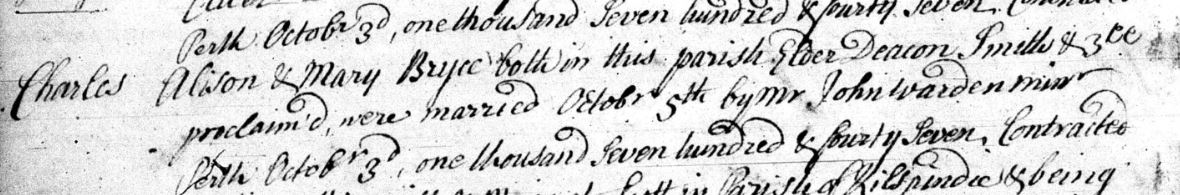 Perth Octobr 3d, one thousand Seven hundred & fourty Seven. Contracted
Charles Alison & Mary Bryce both in this parish Elder Deacon Smith & 3ce
proclaim'd, were married Octobr 5th by Mr John Warden minr
Perth Octobr 3d, one thousand Seven hundred & fourty Seven. Contracted
in Parish of Kilspindie & being